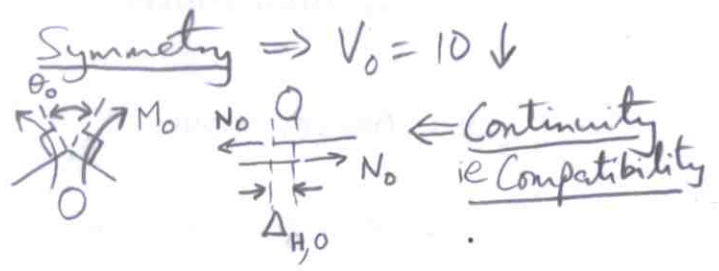 Symmetry ⇒ V₀ = 10 ↓
θ₀
M₀ N₀ O ⇐ Continuity
N₀ ie Compatibility
O
Δ_H,O